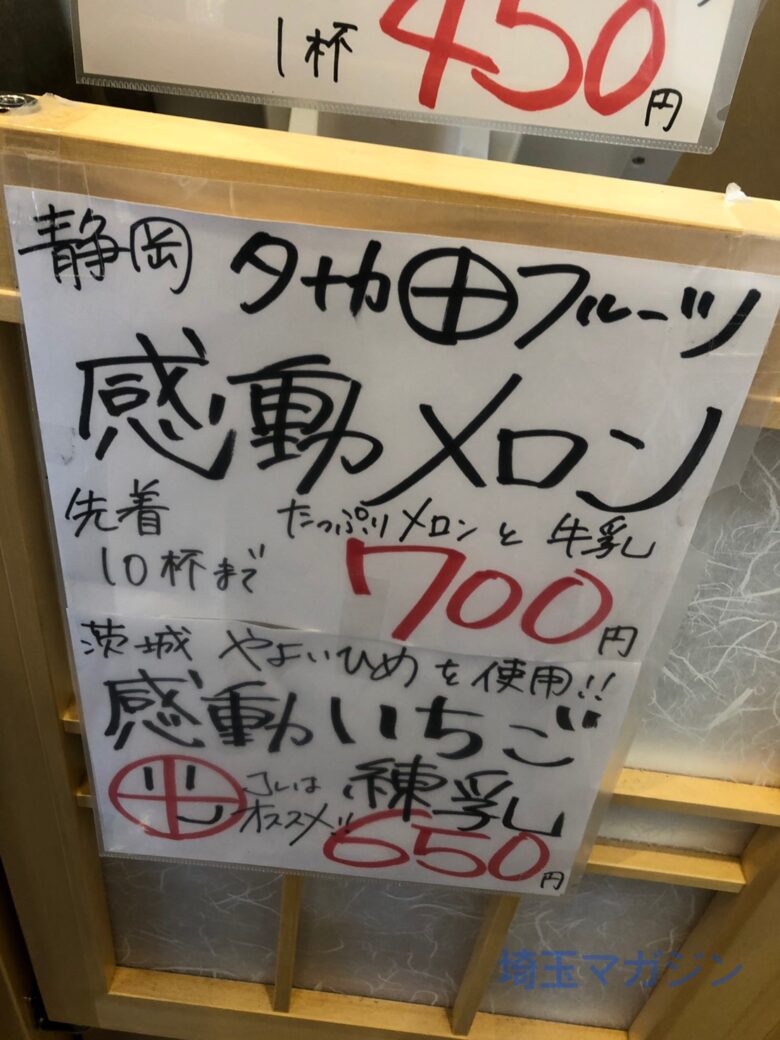 1杯 450円
静岡 タカ田フルーツ
感動メロン
先着 たっぷりメロンと牛乳
10杯まで 700円
茨城 やよいひめを使用!!
感動いちご
コレは 練乳
オススメ!! 650円
埼玉マガジン